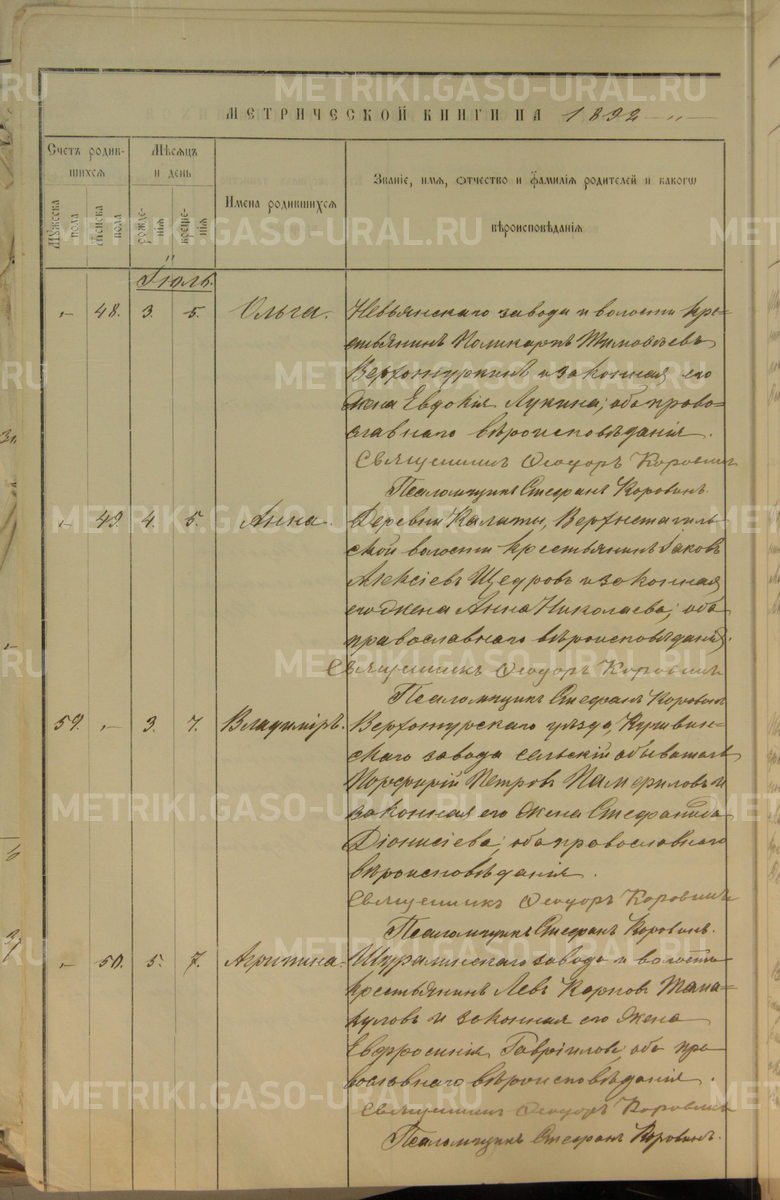 МЕТРИЧЕСКОЙ КНИГИ НА 1892
Счетъ родив-
шихся
Мѣсяцъ
и день
Имена родившихся
Званіе, имя, отчество и фамилія родителей и какого
вѣроисповѣданія
Мужеска
пола
Женска
пола
рожде-
нія
креще-
нія
Іюль.
48. 3. 5. Ольга. Невьянскаго завода и волости кре-
стьянинъ Поликарпъ Тимофеевъ
Верхотуркинъ и законная его
жена Евдокія Лукина; оба право-
славнаго вѣроисповѣданія.
Священникъ Ѳеодоръ Коровинъ
Псаломщикъ Стефанъ Коровинъ.
49. 4. 5. Анна. Деревни Калаты, Верхнетагиль-
ской волости крестьянинъ Іаковъ
Алексіевъ Щедровъ и законная
его жена Анна Николаева; оба
православнаго вѣроисповѣданія.
Священникъ Ѳеодоръ Коровинъ
Псаломщикъ Стефанъ Коровинъ
59. 3. 7. Владиміръ. Верхотурскаго уѣзда, Кушвин-
скаго завода сельскій обыватель
Порфирій Петровъ Памфиловъ и
законная его жена Стефанида
Діонисіева; оба православнаго
вѣроисповѣданія.
Священникъ Ѳеодоръ Коровинъ
Псаломщикъ Стефанъ Коровинъ.
50. 5. 7. Агрипина. Шуралинскаго завода и волости
крестьянинъ Левъ Карповъ Тама-
куловъ и законная его жена
Евфросинія Гавріилова; оба пра-
вославнаго вѣроисповѣданія.
Священникъ Ѳеодоръ Коровинъ
Псаломщикъ Стефанъ Коровинъ.
METRIKI.GASO-URAL.RU